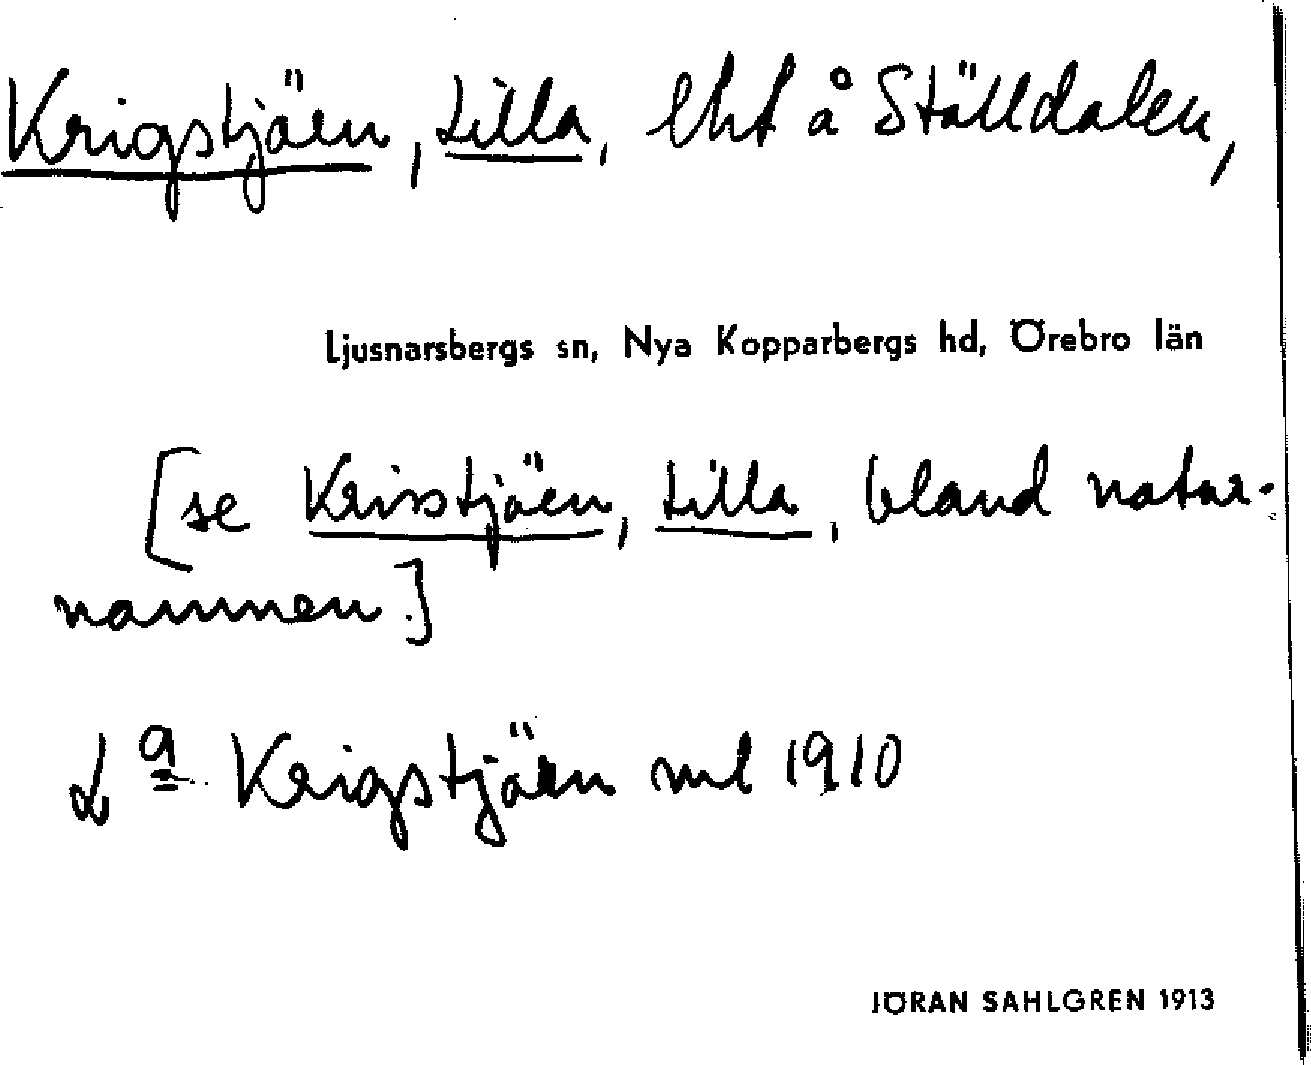 Krigstjäen, Lilla, lht å Ställdalen,
Ljusnarsbergs sn, Nya Kopparbergs hd, Örebro län
[se Krisstjäen, Lilla, bland natur-
namnen.]
La Krigstjäen ml 1910
JÖRAN SAHLGREN 1913